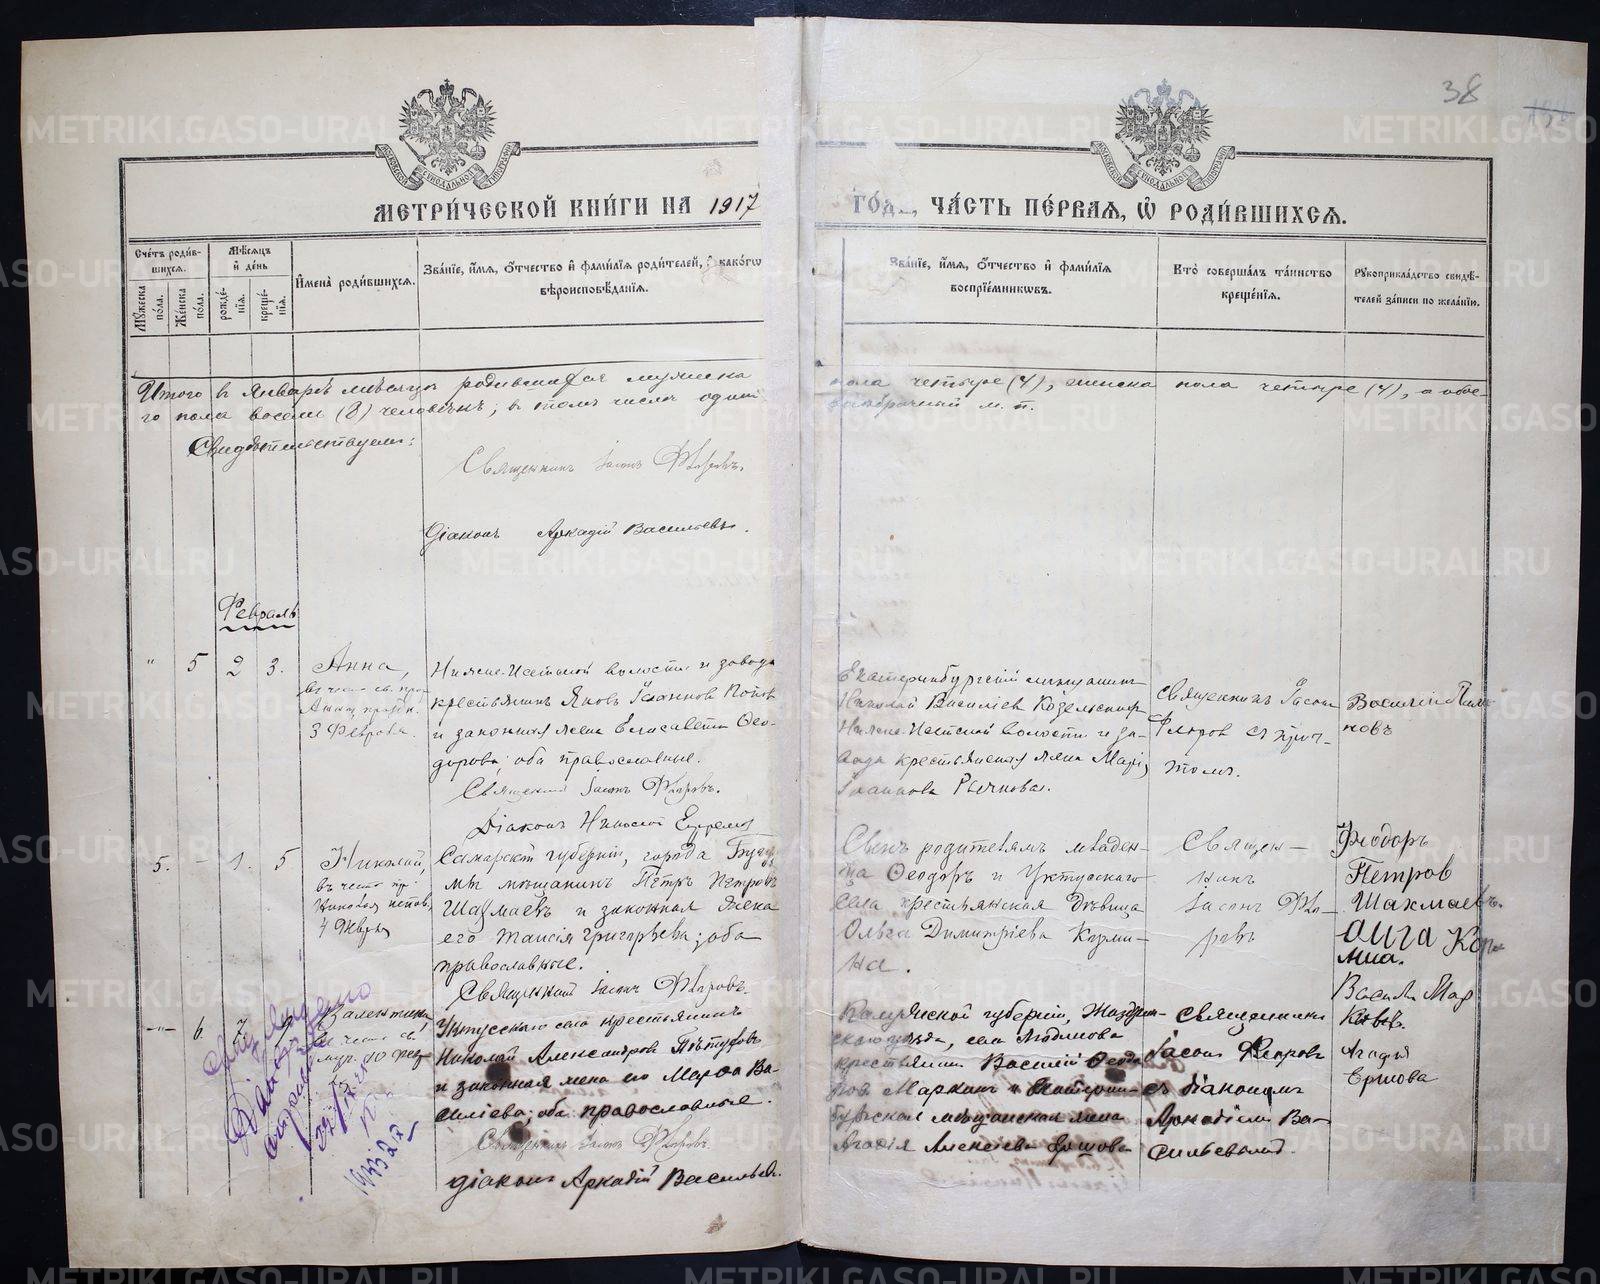 38
МЕТРИ́ЧЕСКОЙ КНИ́ГИ НА 1917
ГО́ДЪ, ЧА́СТЬ ПЕ́РВАЯ, Ѡ҆ РОДИ́ВШИХСЯ.
Сче́тъ роди́в-
шихся.
Мѣ́сяцъ
и҆ де́нь
Му́жеска
по́ла.
Же́нска
по́ла.
рожде́-
нїя.
креще́-
нїя.
И҆мена̀ роди́вшихся.
Зва́нїе, и҆́мя, ѻ҆́тчество и҆ фами́лїя роди́телей, и҆ како́гѡ
вѣроисповѣ́данїя.
Зва́нїе, и҆́мя, ѻ҆́тчество и҆ фами́лїя
воспрїе́мникѡвъ.
Кто̀ соверша́лъ та́инство
креще́нїя.
Рꙋкоприкла́дство свидѣ́-
телей за́писи по жела́нїю.
Итого въ Январѣ мѣсяцѣ родившихся мужска
го пола восемь (8) человѣкъ; въ томъ числѣ одинъ
пола четыре (4), женска пола четыре (4), а обое-
м. п.
Свидѣтельствуемъ:
Священникъ Іасонъ Флоровъ.
Діаконъ Аркадій Васильевъ.
Февраль
" 5 2 3.
Анна,
въ честь св. прор.
Анны, празд.
3 Февраля.
Нижне-Исетской волости и завода
крестьянинъ Яковъ Іоанновъ Поповъ
и законная жена Елисавета Ѳео-
дорова; оба православные.
Священникъ Іасонъ Флоровъ.
Діаконъ Николай
Екатеринбургскій мѣщанинъ
Николай Василіевъ
Нижне-Исетской волости и за-
вода крестьянская жена Марія
Іоаннова Рычкова.
Священникъ Іасонъ
Флоровъ съ прич-
томъ.
Василій
новъ
5. - 1. 5
Николай,
въ честь пр.
Николая испов.
4 Февр.
Самарской губерніи, города
мѣщанинъ Петръ Петровъ
Шахмаевъ и законная жена
его Таисія Григорьева; оба
православные.
Священникъ Іасонъ Флоровъ.
Сынъ родителямъ младен-
ца Ѳеодоръ и Уктусскаго
села крестьянская дѣвица
Ольга Димитріева Кузми-
на.
Священ-
никъ
Іасонъ Фло-
ровъ
Феодоръ
Петров
Шахмаевъ.
Олга Ку
мина.
-"- 6. 7
Валентина
въ честь св.
муч. 10 февр.
Уктусскаго села крестьянинъ
Николай Александровъ Пѣтуховъ
и законная жена его Марѳа Ва-
силіева; оба православные.
Священникъ Іасонъ Флоровъ.
Діаконъ Аркадій Васильевъ.
Калужской губерніи, Жиздрин-
скаго уѣзда, села Людинова
крестьянинъ Василій Ѳеодо
ровъ Маркинъ и Екатерин-
бургская мѣщанская жена
Агафія Алексѣева Ершова
Священникъ
Іасонъ Флоровъ
съ діакономъ
Аркадіемъ Ва-
сильевымъ.
Василій Мар
Агафья
Ершова
METRIKI.GASO-URAL.RU